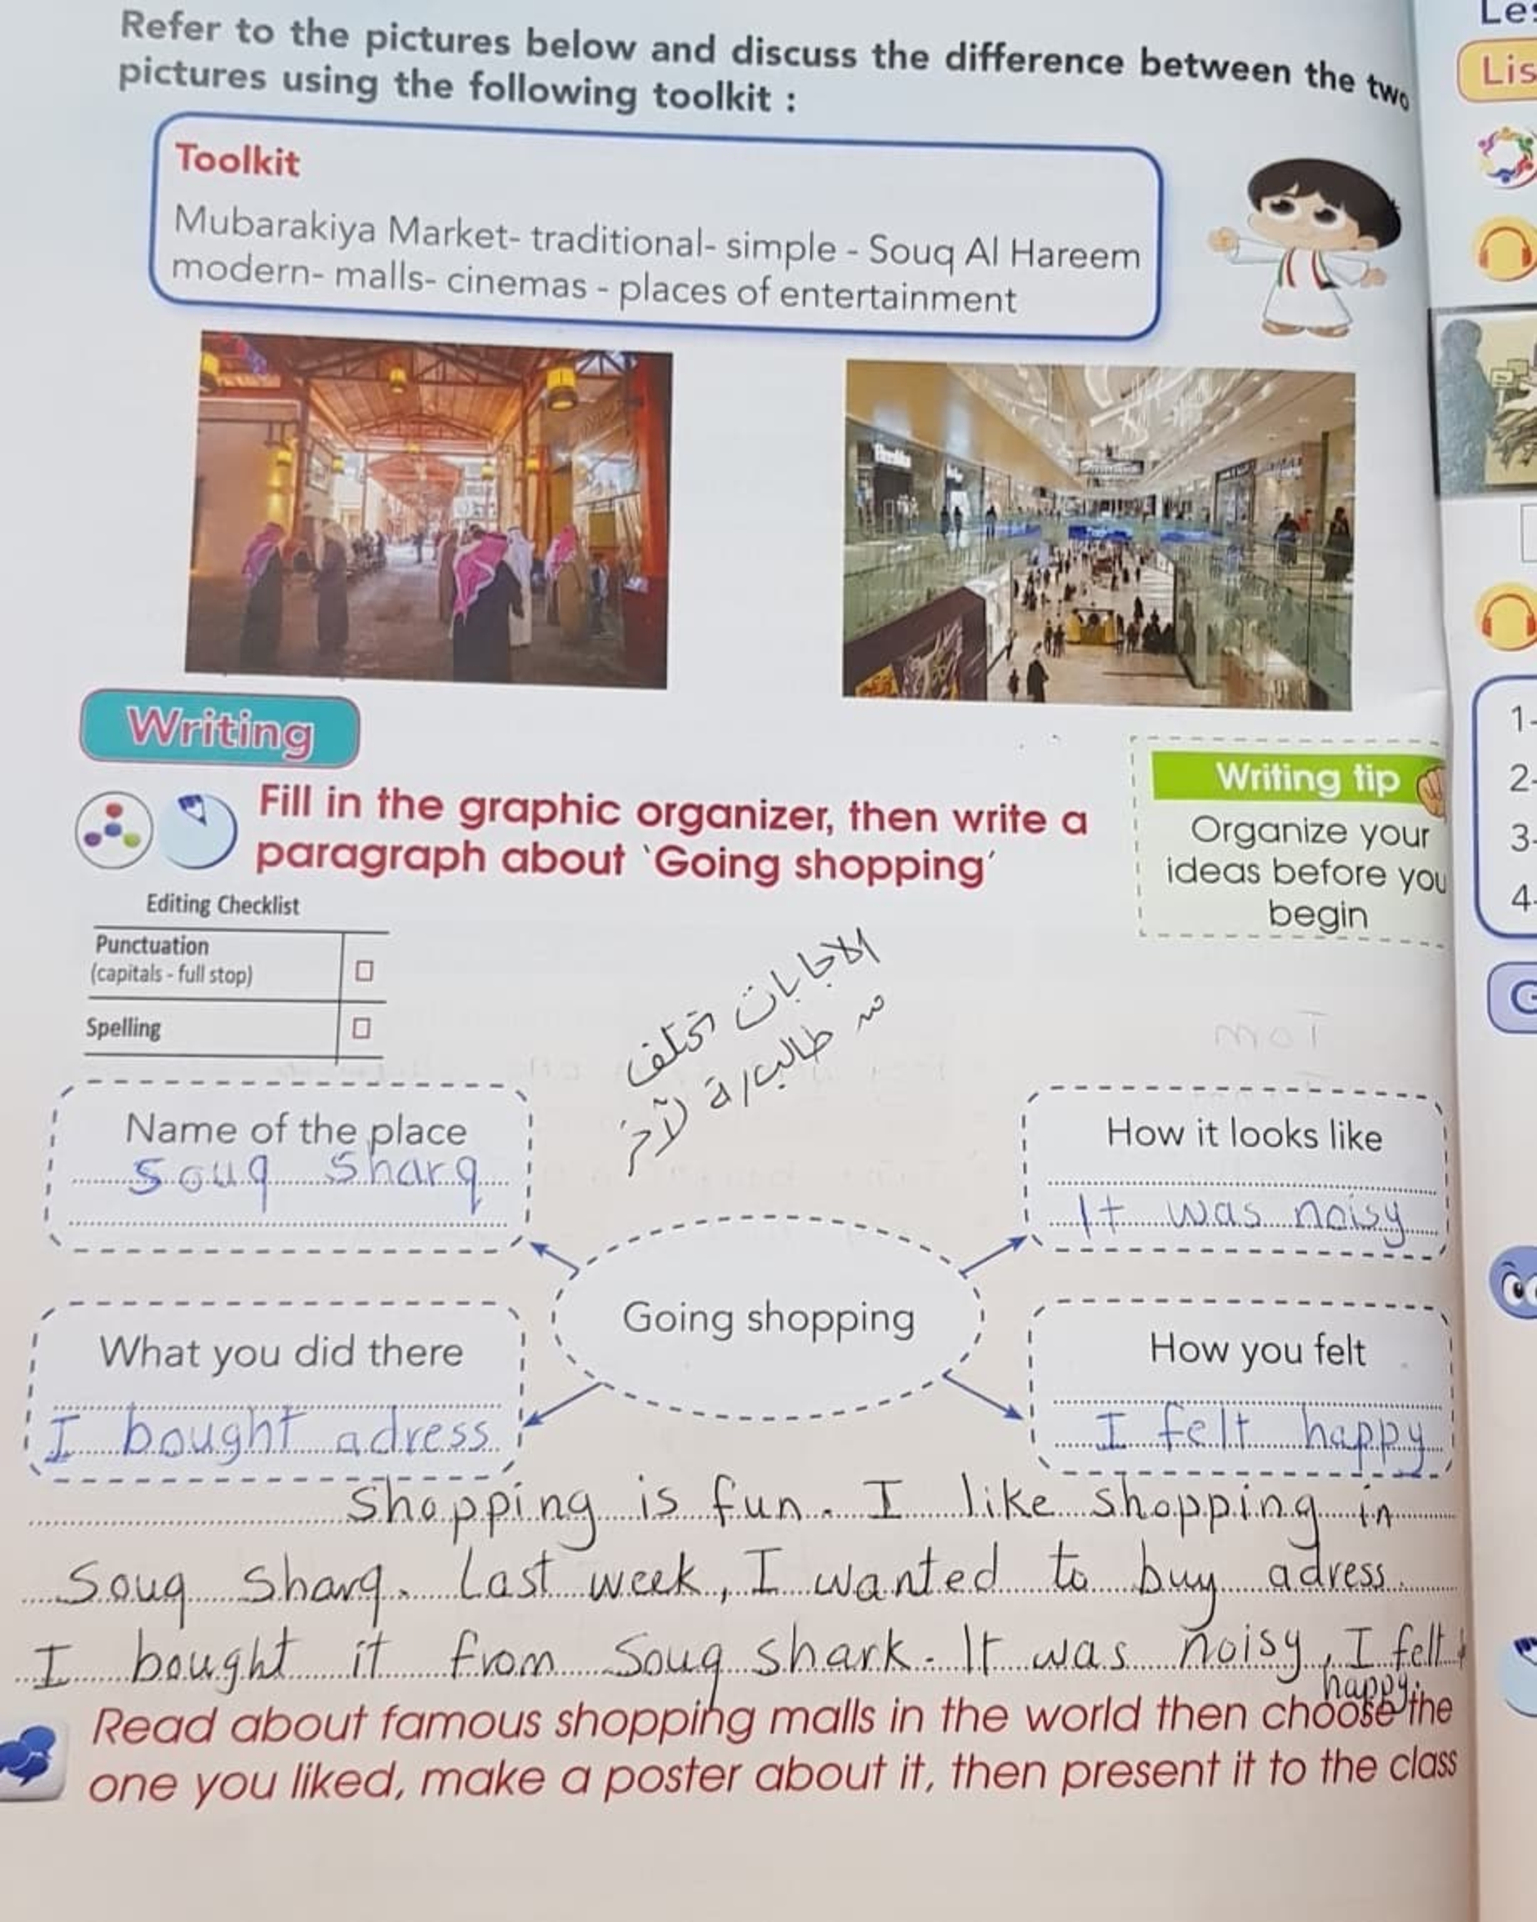 Refer to the pictures below and discuss the difference between the two
pictures using the following toolkit :
Toolkit
Mubarakiya Market- traditional- simple - Souq Al Hareem
modern- malls- cinemas - places of entertainment
Writing
Fill in the graphic organizer, then write a
paragraph about ‘Going shopping’
Writing tip
Organize your
ideas before you
begin
Editing Checklist
Punctuation
(capitals - full stop)
Spelling
الاجابات تختلف
من طالب/ة لآخر
Name of the place
Souq Sharq
How it looks like
It was noisy
Going shopping
What you did there
I bought adress
How you felt
I felt happy
Shopping is fun. I like shopping in
Souq Sharq. Last week, I wanted to buy adress
I bought it from Souq shark. It was noisy, I felt
happy.
Read about famous shopping malls in the world then choose the
one you liked, make a poster about it, then present it to the class
Lis
1-
2-
3-
4-
G